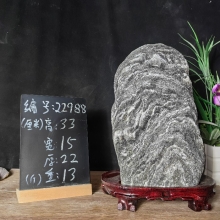 编号:22988
(厘米)高:33
宽15
厚:22
(斤)重:13